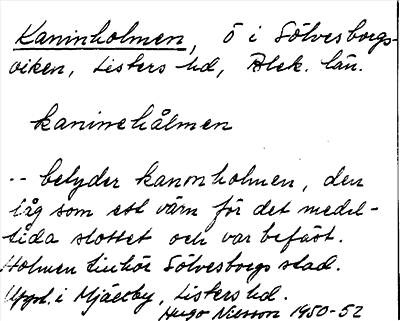 Kaninholmen, ö i Sölvesborgs-
viken, Listers hd, Blek. län.
kaninehålmen
-- betyder kanonholmen, den
låg som ett värn för det medel-
tida slottet och var befäst.
Holmen tillhör Sölvesborgs stad.
Uppt. i Mjällby, Listers hd.
Hugo Nilsson 1950-52